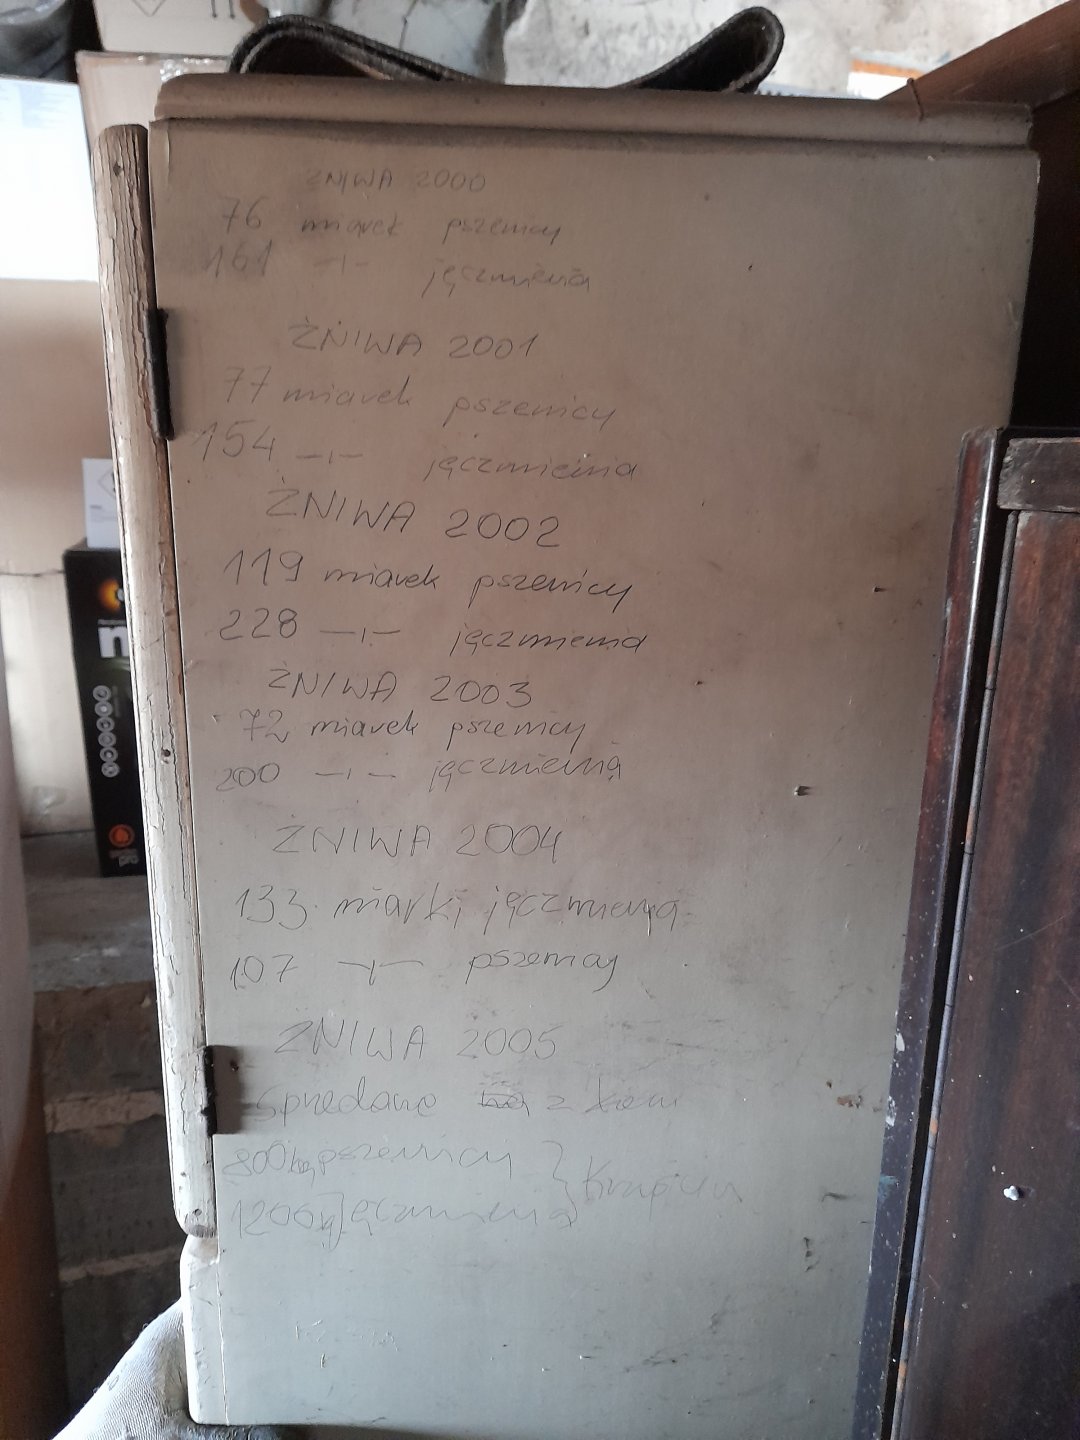 ŻNIWA 2000
76 miarek pszenicy
161 -ı- jęczmienia
ŻNIWA 2001
77 miarek pszenicy
154 -ı- jęczmienia
ŻNIWA 2002
119 miarek pszenicy
228 -ı- jęczmienia
ŻNIWA 2003
72 miarek pszenicy
200 -ı- jęczmienia
ŻNIWA 2004
133 miarki jęczmienia
107 -ı- pszenicy
ŻNIWA 2005
Spredane z
800kg pszenicy
1200kg jęczmienia